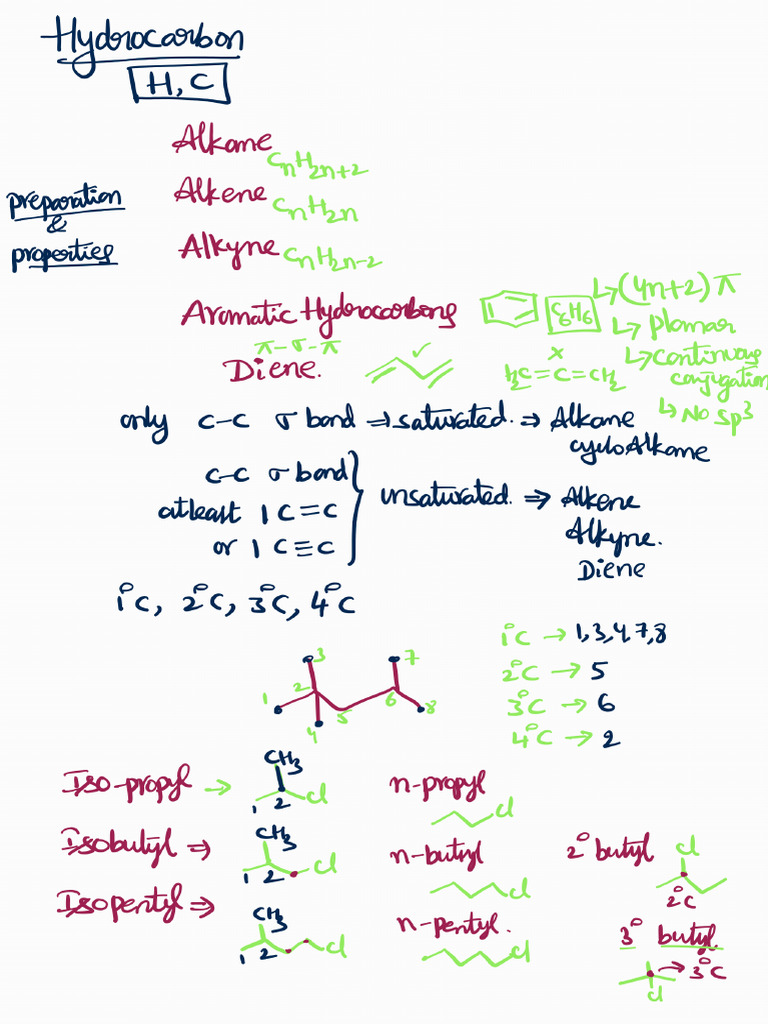 Hydrocarbon
H, C
Alkane CnH2n+2
preparation
&
properties
Alkene CnH2n
Alkyne CnH2n-2
Aromatic Hydrocarbons C6H6
↳ (4n+2) π
↳ planar
↳ continuous
conjugation
↳ No sp³
π-σ-π
Diene. ✓
×
H2C=C=CH2
only C-C σ bond ⇒ saturated. ⇒ Alkane
cyclo Alkane
C-C σ bond
atleast 1 C=C
or 1 C≡C
unsaturated. ⇒ Alkene
Alkyne.
Diene
1°C, 2°C, 3°C, 4°C
1 2 3 4 5 6 7 8
1°C → 1,3,4,7,8
2°C → 5
3°C → 6
4°C → 2
Iso-propyl → CH3 1 2 Cl
n-propyl Cl
Isobutyl ⇒ CH3 1 2 Cl
n-butyl Cl
2° butyl Cl 2°C
Isopentyl ⇒ CH3 1 2 Cl
n-pentyl. Cl
3° butyl. → 3°C Cl